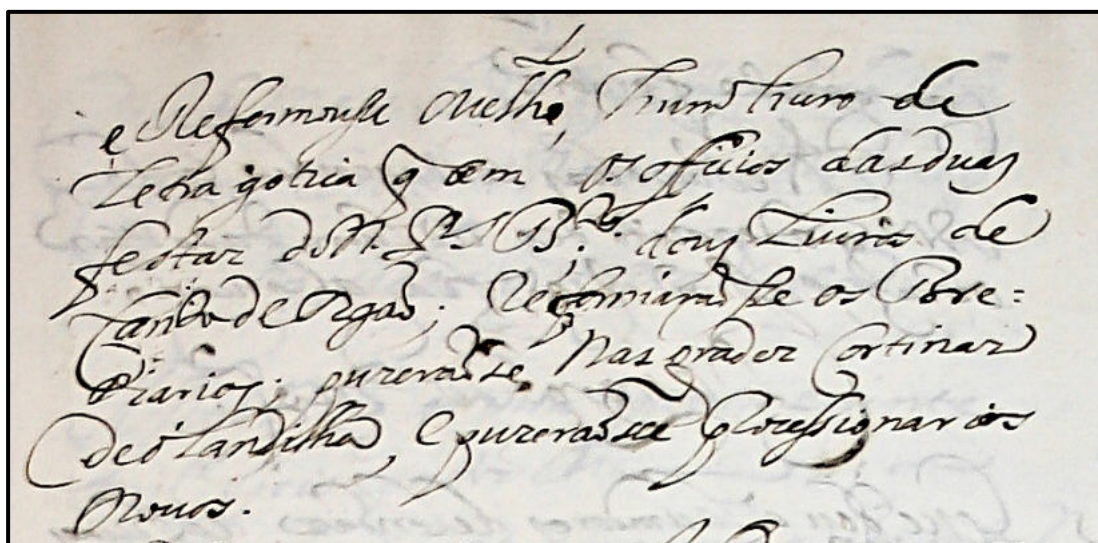 e Reformouse o velho, hum livro de
Letra gotica q̃ tem os officios das duas
festas do N. P. S. B.^to; dous Livros de
Canto de Orgaõ; Reformaraõ se os Bre=
viarios; puzeraõse nas grades Cortinas
de olandilha, e puzeraõsee processionarios
Novos.